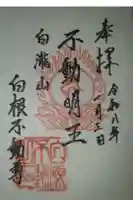 奉拝
令和八年
一月三日
不動明王
白瀧山
白根不動尊